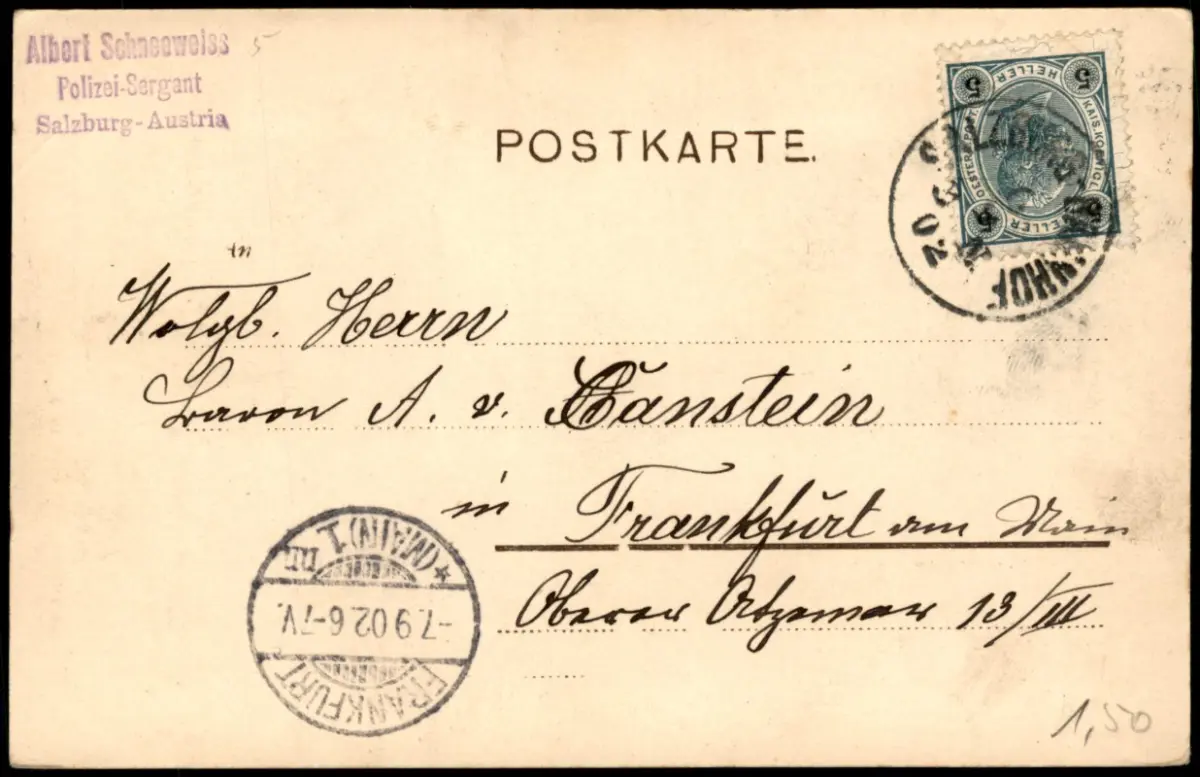 Albert Schneeweiss 5
Polizei-Sergant
Salzburg-Austria
POSTKARTE.
5 HELLER 5
KAIS. KOENIGL. OESTERR. POST.
5 HELLER 5
SALZBURG-BAHNHOF
02
An
Wolgb. Herrn
Baron A. v. Canstein
in Frankfurt am Main
Oberer 13/III
FRANKFURT
-7.9 02 6-7V.
* (MAIN) 1.
1,50